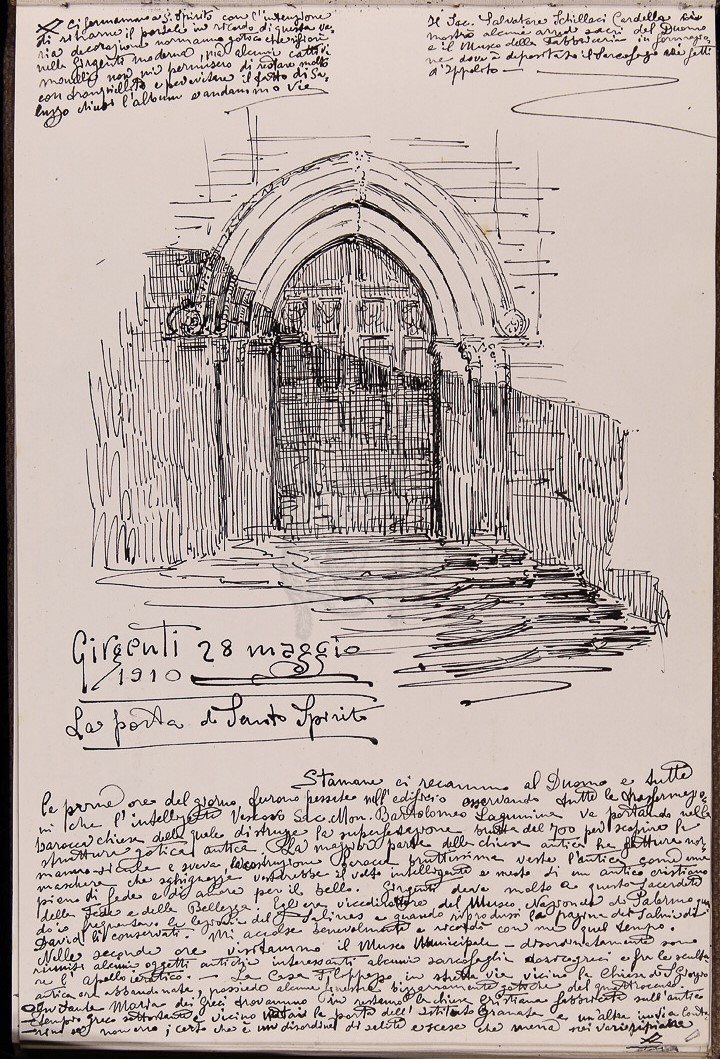 Ci fermammo a S. Spirito con l'intenzione
di ritrarne il portale in ricordo di questa va-
ria decorazione normanno gotica che rifiorì
nella Girgenti moderna, ma alcuni cattivi
monelli non mi permisero di restare molto
con tranquillità e per evitare il fatto di Sa-
luzzo chiusi l'album e andammo via
Il Sac. Salvatore Schillaci Cardella
mostrò alcuni arredi sacri del Duomo
e il Museo della Fabbriceria in formazio
ne dove è depositato il Sarcofago
d'Ippolito —
Girgenti 28 maggio
1910
La porta di Santo Spirito
Stamane ci recammo al Duomo e tutte
le prime ore del giorno furono passate nell'edificio osservando tutte le trasformazio-
ni che l'intelligente Vescovo Sac. Mon. Bartolomeo Lagumina va portando nella
barocca chiesa della quale distrugge la superfetazione del 700 per scoprire le
strutture gotica antica. La maggior parte della chiesa antica ha fatture nor-
manno sicule e sveva, la costruzione barocca bruttissima veste l'antica come una
maschera che vestirebbe il volto intelligente e mesto di un antico cristiano
pieno di fede e di amore per il bello. Girgenti deve molto a questo Sacerdote
della Fede e della Bellezza. Egli era vicedirettore del Museo Nazionale di Palermo
do io frequentavo le lezioni del Salinas e quando riprodussi la pagina dei Salmi di
David lì conservati. Mi accolse benevolmente e ricordò con me quel tempo.
Nelle seconde ore visitammo il Museo Municipale — disordinatamente sono
riuniti alcuni oggetti antichi interessanti alcuni sarcofaghi greci e fra le scultu
re l'apollo — La Casa Filippazzo in stretta via vicino la Chiesa di S. Giorgio
antica ora abbandonata, possiede alcune finestre bizzarramente gotiche del quattrocento.
In Santa Maria dei Greci trovammo in restauro la chiesa cristiana fabbricata sull'antico
tempio greco sottostante, vicino la porta dell'Istituto Granata e un'altra
non erro; certo che è un disordine di salite e scese che mena nei vari